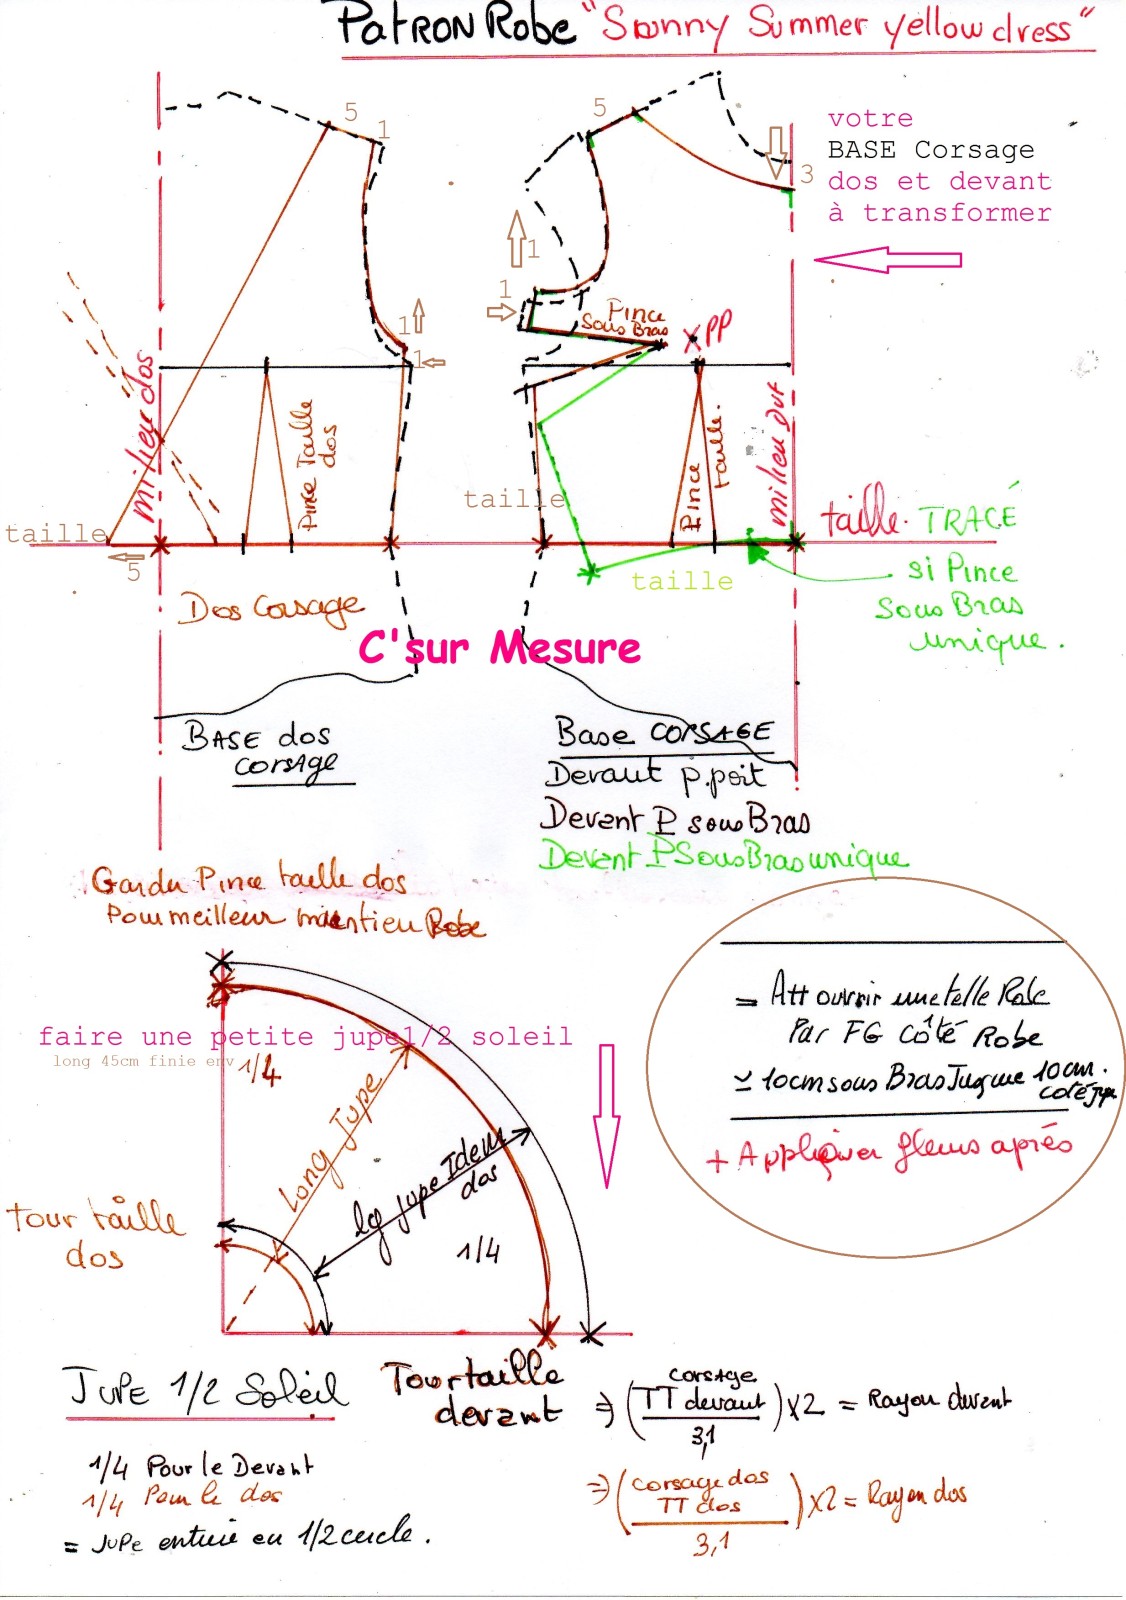 Patron Robe "Sunny Summer yellow dress"
5
1
5
3
votre
BASE Corsage
dos et devant
à transformer
1
1
1
1
Pince
Sous Bras
PP
milieu dos
Pince Taille
dos
Pince
taille.
milieu dvt
taille
taille
taille. TRACÉ
5
taille
si Pince
Sous Bras
unique.
Dos Corsage
C'sur Mesure
BASE dos
corsage
Base CORSAGE
Devant p.poit
Devant P sous Bras
Devent P Sous Bras unique
Garder Pince taille dos
Pour meilleur maentieu Robe
faire une petite jupe1/2 soleil
long 45cm finie env
1/4
Long Jupe
lg jupe Idem
dos
1/4
Tour taille
dos
= Att ouvrir une telle Robe
Par FG Côté Robe
≃ 10cm sous Bras Jusque 10cm.
coté jupe
+ Appliquer fleurs après
JUPE 1/2 Soleil
Tour taille
devant
⇒ (corsage TT devant / 3,1) x2 = Rayon devant
1/4 Pour le Devant
1/4 Pour le dos
= JuPe entière en 1/2 cercle.
⇒ (corsage dos TT dos / 3,1) x2 = Rayon dos